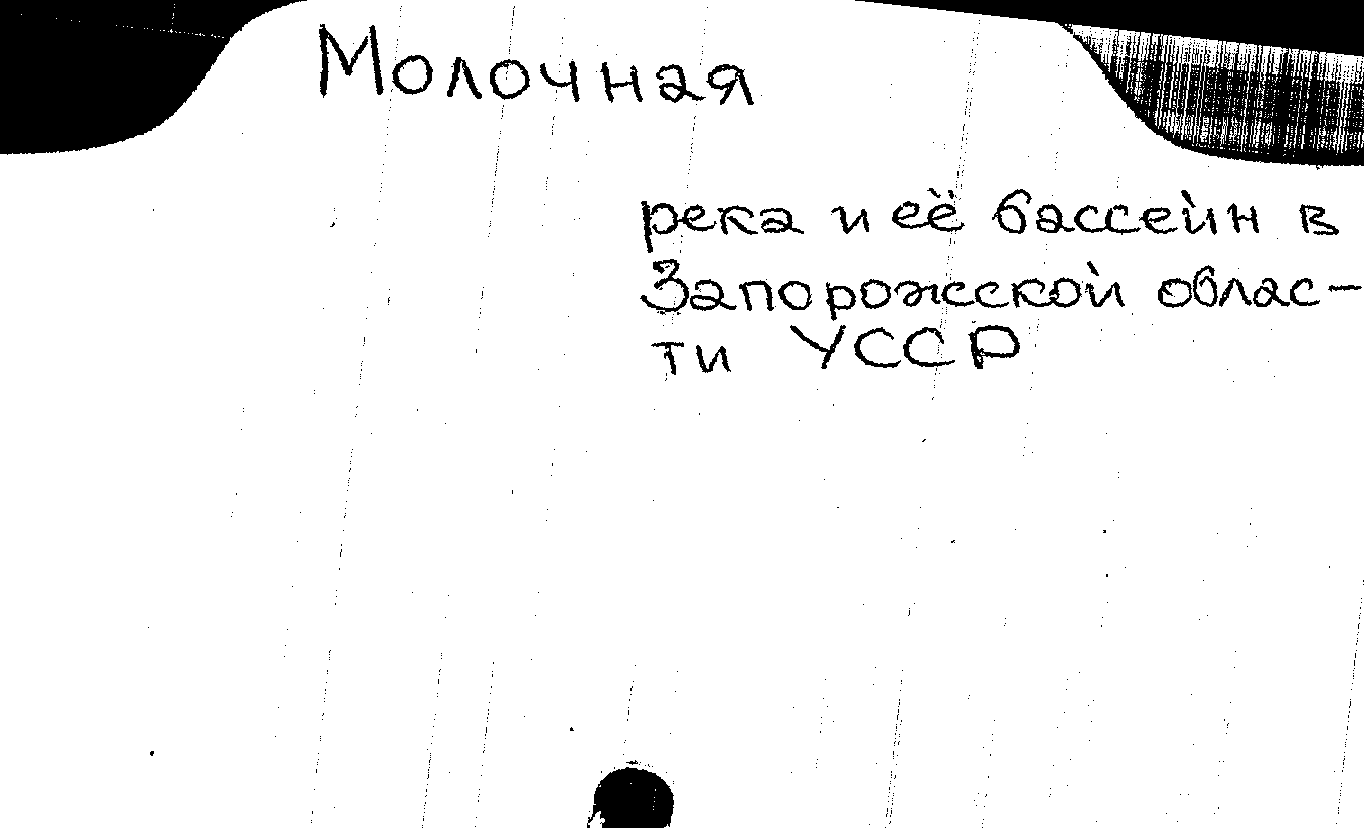 Молочная
река и её бассейн в
Запорожской облас-
ти УССР